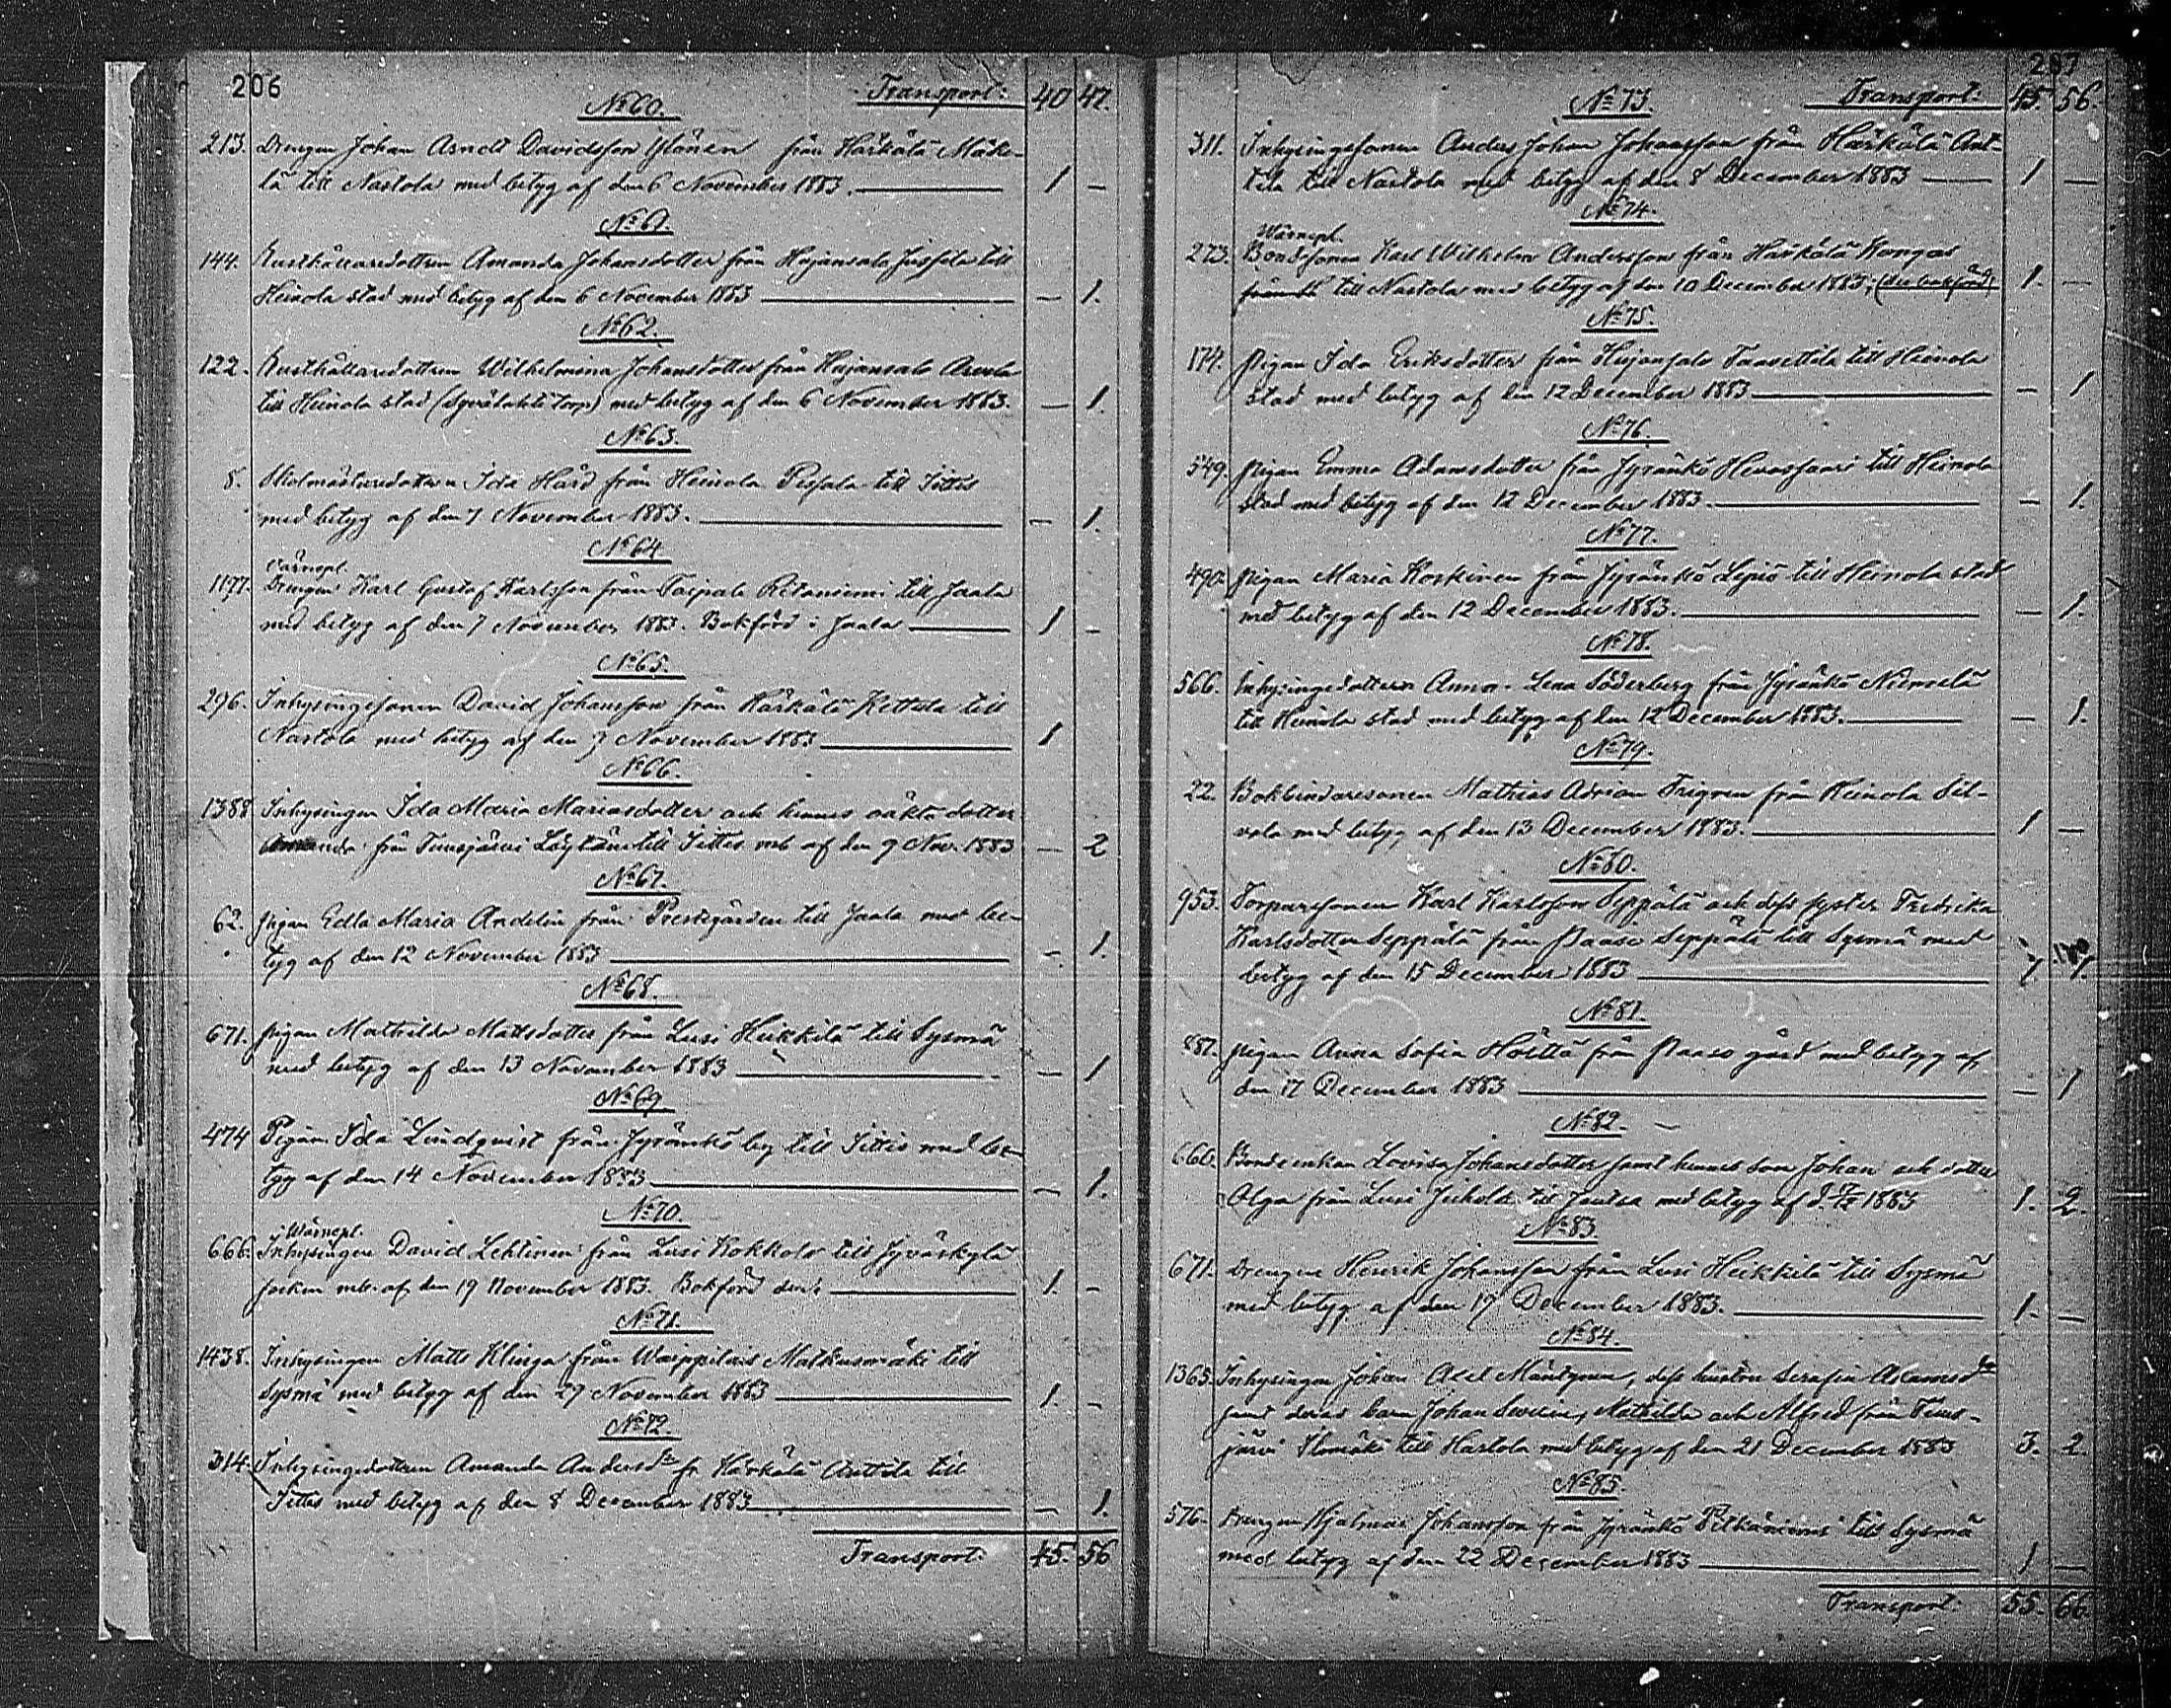 206
Transport: 40 47.
No 60.
213. Drengen Johan Arndt Davidsson från Härkälä Mäke-
lä till Nastola med betyg af den 6 November 1883. 1 —
No 61.
144. Rusthållaredottren Amanda Johansdotter från Hujansalo Jussila till
Heinola stad med betyg af den 6 November 1883 — 1.
No 62.
122. Rusthållaredottren Wilhelmina Johansdotter från Hujansalo
till Heinola stad ( torp) med betyg af den 6 November 1883. — 1.
No 63.
8. Skolmästaredottren Ida Hård från Heinola till Jittis
med betyg af den 7 November 1883. — 1.
No 64
Värnepl.
1177. Drengen Karl Gustaf Karlsson från Taipale Ritaniemi till Jaala
med betyg af den 7 November 1883. Bokförd i Jaala 1 —
No 65.
296. Inhysingesonen David Johansson från Härkälä Kettula till
Nastola med betyg af den 7 November 1883 1
No 66.
1388 Inhysingen Ida Maria Mariasdotter och hennes oäkta dotter
Amanda från till Jittis mb af den 9 Nov. 1883 — 2
No 67.
62. pigan Edla Maria Andelin från Prestgården till Jaala med be-
tyg af den 12 November 1883 — 1.
No 68.
671. pigan Mathilda Mattsdotter från Lusi Heikkilä till Sysmä
med betyg af den 13 November 1883 — 1
No 69.
474 Pigan Ida Lindqvist från Jyränkö by till Jittis med be-
tyg af den 14 November 1883 — 1.
No 70.
Värnepl.
666. Inhysingen David Lehtinen från Lusi Kokkola till Jyväskylä
socken mb. af den 19 November 1883. Bokförd der: 1. —
No 71.
1438. Inhysingen Matts Klinga från Waippilais Matkusmäki till
Sysmä med betyg af den 27 November 1883 1. —
No 72.
314. Inhysingedottren Amanda Andersdr fr Härkälä Anttila till
Jittis med betyg af den 8 December 1883 — 1.
Transport: 45. 56
207
No 73. Transport: 45. 56.
311. Inhysingesonen Anders Johan Johansson från Härkälä Ant-
tila till Nastola med betyg af den 8 December 1883 1 —
No 74.
Wärnepl.
273. Bondesonen Karl Wilhelm Andersson från Härkälä Kongas
till Nastola med betyg af den 10 December 1883; 1. —
No 75.
174. pigan Ida Eriksdotter från Hujansalo Taasettila till Heinola
stad med betyg af den 12 December 1883 — 1
No 76.
549. pigan Emma Adamsdotter från Jyränkö Hevossaari till Heinola
stad med betyg af den 12 December 1883. — 1.
No 77.
490. pigan Maria Koskinen från Jyränkö Lepis till Heinola stad
med betyg af den 12 December 1883. — 1.
No 78.
566. Inhysingedottern Anna-Lena Söderberg från Jyränkö Niemelä
till Heinola stad med betyg af den 12 December 1883. — 1.
No 79.
22. Bokbindaresonen Mathias Adrian från Heinola Sil-
vola med betyg af den 13 December 1883. 1 —
No 80.
953. Torparesonen Karl Karlsson Seppälä och dess syster Fredrika
Karlsdotter Seppälä från Paaso Seppälä till Sysmä med
betyg af den 15 December 1883 1 1.
No 81.
887. pigan Anna Sofia Höltta från Paaso gård med betyg af
den 17 December 1883 — 1
No 82.
660. Bondeenkan Lovisa Johansdotter samt hennes son Johan och dotter
Olga från Lusi till Joutsa med betyg af d. 1883 1. 2.
No 83.
671. Drengen Henrik Johansson från Lusi Heikkilä till Sysmä
med betyg af den 17 December 1883. 1. —
No 84.
1365. Inhysingen Johan Axel Mäntynen, dess hustru Serafia Adamsdr
samt deras barn Johan Severin, Mathilda och Alfred från
järvi till Hartola med betyg af den 21 December 1883 3. 2
No 85.
576. Drengen Hjalmar Johansson från Jyränkö Pitkäniemi till Sysmä
med betyg af den 22 December 1883 1 —
Transport: 55. 66.